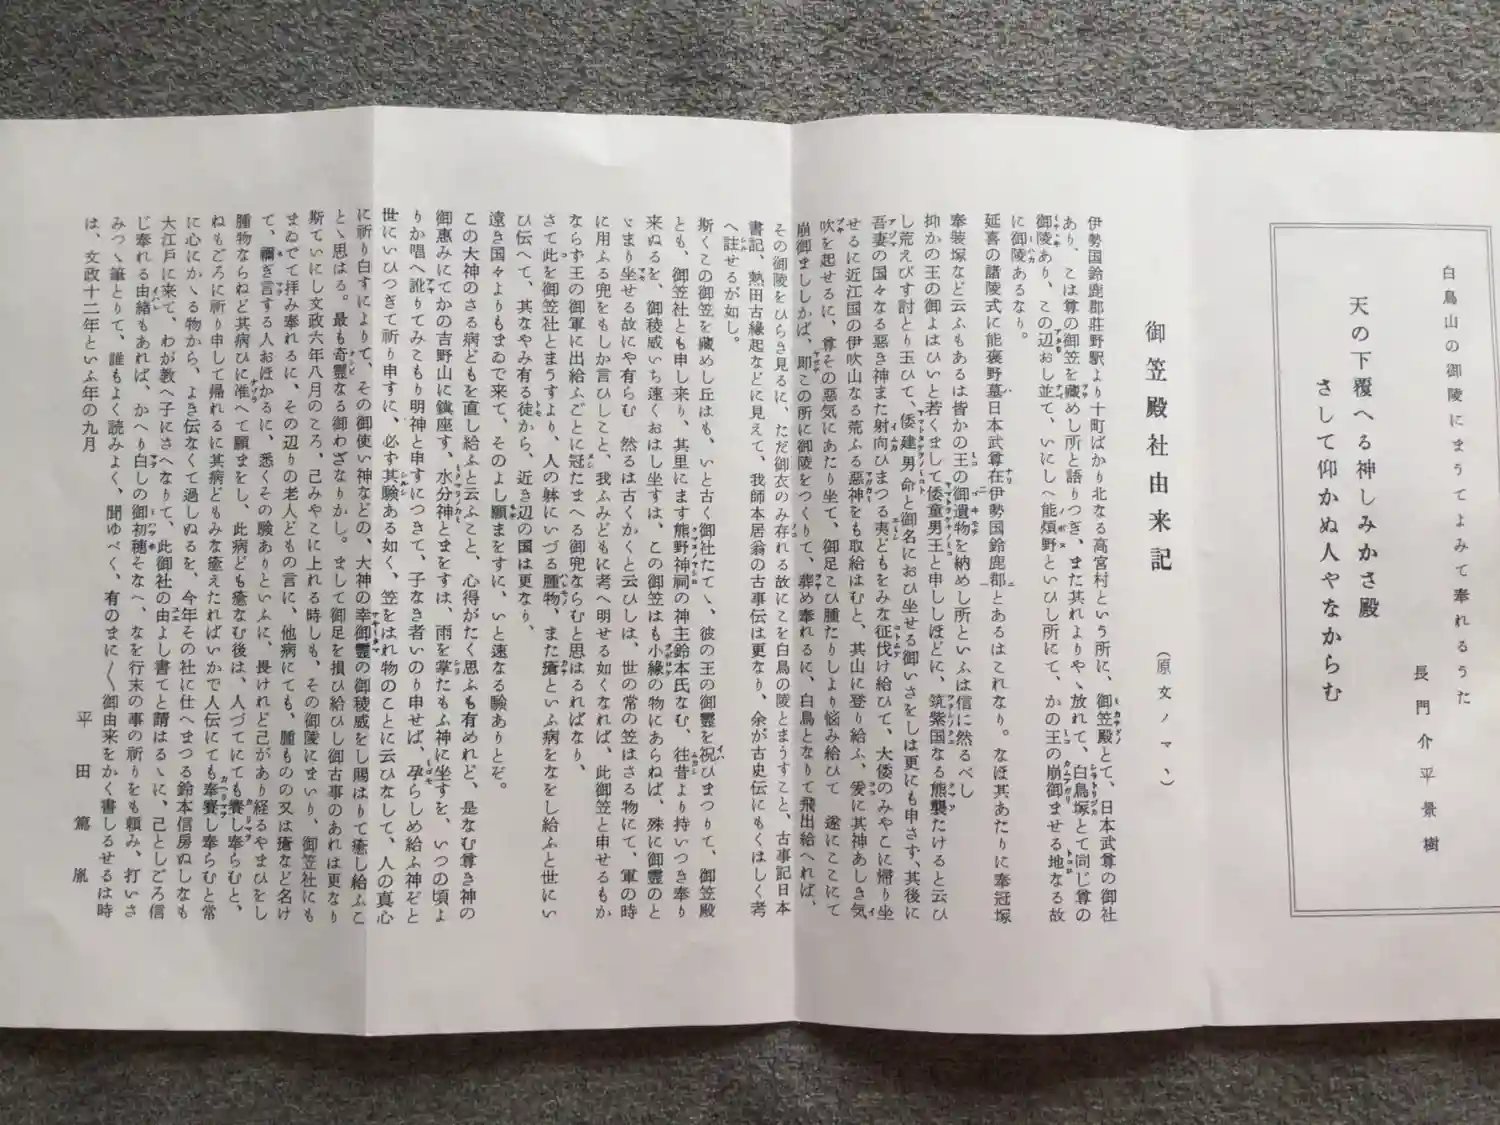 白鳥山の御陵にまうてよみて奉れるうた
長門介平景樹
天の下覆へる神しみかさ殿
さして仰かぬ人やなからむ
御笠殿社由来記
(原文ノマヽ)
伊勢国鈴鹿郡庄野駅より十町ばかり北なる高宮村という所に、御笠殿とて、日本武尊の御社
あり、こは尊の御笠を蔵めし所と語りつぎ、また其れよりやゝ放れて、白鳥塚とて同じ尊の
御陵あり、この辺おし並て、いにしへ能煩野といひし所にて、かの王の崩御ませる地なる故
に御陵あるなり。
延喜の諸陵式に能褒野墓日本武尊在伊勢国鈴鹿郡とあるはこれなり。なほ其あたりに奉冠塚
奉装塚など云ふもあるは皆かの王の御遺物を納めし所といふは信に然るべし
抑かの王の御よはひいと若くまして倭童男王と申ししほどに、筑紫国なる熊襲たけると云ひ
し荒えびす討とり玉ひて、倭建男命と御名におひ坐せる御いさをしは更にも申さす、其後に
吾妻の国々なる悪き神また射向ひまつる夷どもをみな征伐け給ひて、大倭のみやこに帰り坐
せるに近江国の伊吹山なる荒ふる悪神をも取給はむと、其山に登り給ふ、爰に其神あしき気
吹を起せるに、尊その悪気にあたり坐て、御足ひ腫たりしより悩み給ひて 遂にここにて
崩御ましししかば、即この所に御陵をつくりて、葬め奉れるに、白鳥となりて飛出給へれば、
その御陵をひらき見るに、ただ御衣のみ存れる故にこを白鳥の陵とまうすこと、古事記日本
書記、熱田古縁起などに見えて、我師本居翁の古事伝は更なり、余が古史伝にもくはしく考
へ註せるが如し。
斯くこの御笠を蔵めし丘はも、いと古く御社たてゝ、彼の王の御霊を祝ひまつりて、御笠殿
とも、御笠社とも申し来り、其里にます熊野神祠の神主鈴本氏なむ、往昔より持いつき奉り
来ぬるを、御稜威いち速くおはし坐すは、この御笠はも小縁の物にあらねば、殊に御霊のと
ゞまり坐せる故にや有らむ 然るは古くかくと云ひしは、世の常の笠はさる物にて、軍の時
に用ふる兜をもしか言ひしこと、我ふみどもに考へ明せる如くなれば、此御笠と申せるもか
ならず王の御軍に出給ふごとに冠たまへる御兜ならむと思はるればなり、
さて此を御笠社とまうすより、人の躰にいづる腫物、また瘡といふ病をなをし給ふと世にい
ひ伝へて、其なやみ有る徒から、近き辺の国は更なり、
遠き国々よりもまゐで来て、そのよし願まをすに、いと速なる験ありとぞ。
この大神のさる病どもを直し給ふと云ふこと、心得がたく思ふも有めれど、是なむ尊き神の
御恵みにてかの吉野山に鎮座す、水分神とまをすは、雨を掌たもふ神に坐すを、いつの頃よ
りか唱へ訛りてみこもり明神と申すにつきて、子なき者いのり申せば、孕らしめ給ふ神ぞと
世にいひつぎて祈り申すに、必ず其験ある如く、笠をはれ物のことに云ひなして、人の真心
に祈り白すによりて、その御使い神などの、大神の幸御霊の御稜威をし賜はりて癒し給ふこ
とゝ思はる。最も奇霊なる御わざなりかし。まして御足を損ひ給ひし御古事のあれは更なり
斯ていにし文政六年八月のころ、己みやこに上れる時しも、その御陵にまいり、御笠社にも
まゐでて拝み奉れるに、その辺りの老人どもの言に、他病にても、腫もの又は瘡など名け
て、禱ぎ言する人おほかるに、悉くその験ありといふに、畏けれど己があり経るやまひをし
腫物ならねど其病ひに准へて願まをし、此病ども癒なむ後は、人づてにても賽し奉らむと、
ねもごろに祈り申して帰れるに其病どもみな癒えたればいかで人伝にても奉賽し奉らむと常
に心にかゝる物から、よき伝なくて過しぬるを、今年その社に仕へまつる鈴本信房ぬしなも
大江戸に来て、わが教へ子にさへなりて、此御社の由よし書てと請はるゝに、己としごろ信
じ奉れる由緒もあれば、かへり白しの御初穂そなへ、なを行末の事の祈りをも頼み、打いさ
みつゝ筆とりて、誰もよく読みよく、聞ゆべく、有のまに〱御由来をかく書しるせるは時
は、文政十二年といふ年の九月
平田篤胤